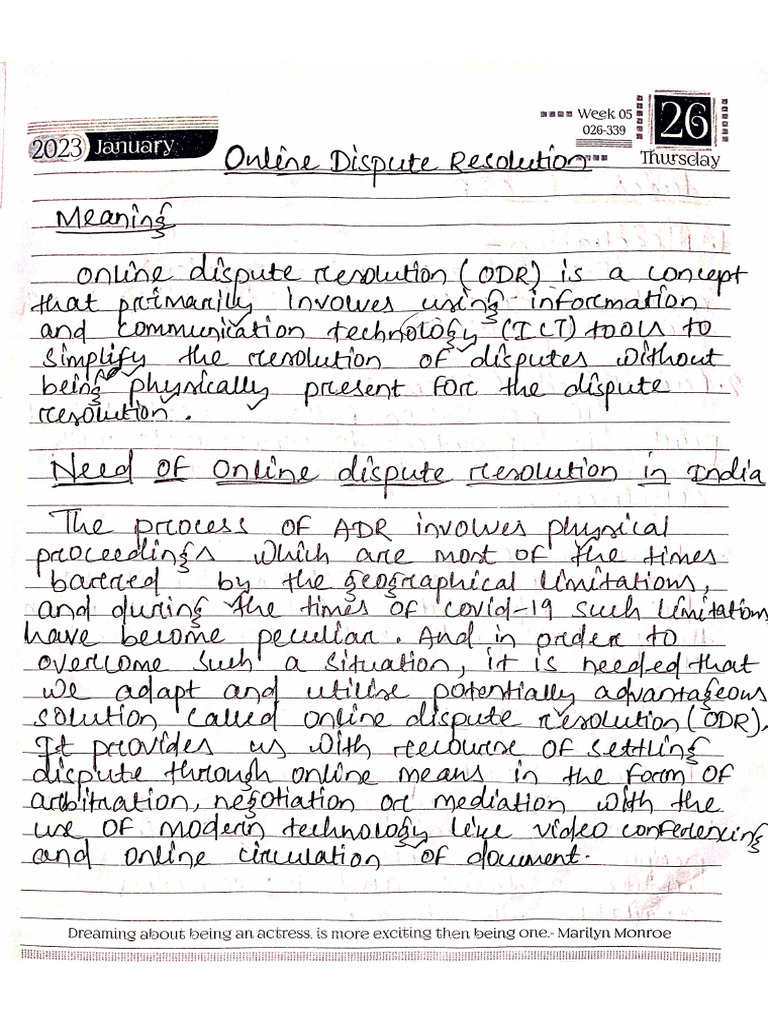 Week 05
026-339
26
Thursday
2023 January
Online Dispute Resolution
Meaning
Online dispute resolution (ODR) is a concept
that primarily involves using information
and communication technology (ICT) tools to
simplify the resolution of disputes without
being physically present for the dispute
resolution.
Need of Online dispute resolution in India
The process of ADR involves physical
proceedings which are most of the times
barred by the geographical limitations,
and during the times of covid-19 such limitations
have become peculiar. And in order to
overcome such a situation, it is needed that
we adapt and utilise potentially advantageous
solution called online dispute resolution (ODR).
It provides us with recourse of settling
dispute through online means in the form of
arbitration, negotiation or mediation with the
use of modern technology like video conferencing
and online circulation of document.
Dreaming about being an actress, is more exciting then being one.- Marilyn Monroe